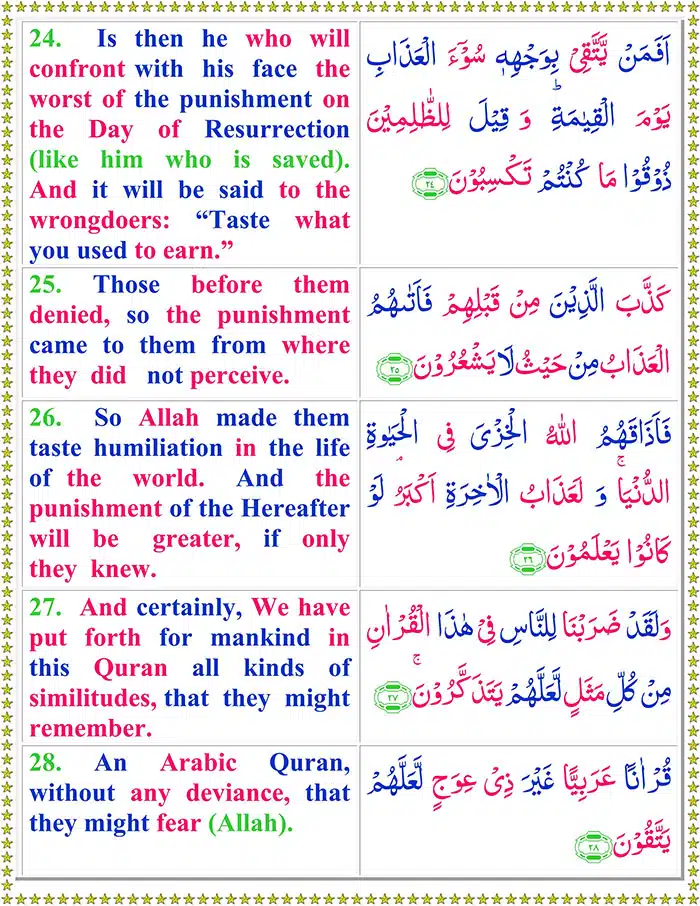 24. Is then he who will
confront with his face the
worst of the punishment on
the Day of Resurrection
(like him who is saved).
And it will be said to the
wrongdoers: “Taste what
you used to earn.”
اَفَمَنْ يَّتَّقِىْ بِوَجْهِهٖ سُوْٓءَ الْعَذَابِ
يَوْمَ الْقِيٰمَةِ ؕ وَ قِيْلَ لِلظّٰلِمِيْنَ
ذُوْقُوْا مَا كُنْتُمْ تَكْسِبُوْنَ ۲۴
25. Those before them
denied, so the punishment
came to them from where
they did not perceive.
كَذَّبَ الَّذِيْنَ مِنْ قَبْلِهِمْ فَاَتٰٮهُمُ
الْعَذَابُ مِنْ حَيْثُ لَا يَشْعُرُوْنَ ۲۵
26. So Allah made them
taste humiliation in the life
of the world. And the
punishment of the Hereafter
will be greater, if only
they knew.
فَاَذَاقَهُمُ اللّٰهُ الْخِزْىَ فِى الْحَيٰوةِ
الدُّنْيَا ۚ وَ لَعَذَابُ الْاٰخِرَةِ اَكْبَرُ ۘ لَوْ
كَانُوْا يَعْلَمُوْنَ ۲۶
27. And certainly, We have
put forth for mankind in
this Quran all kinds of
similitudes, that they might
remember.
وَلَقَدْ ضَرَبْنَا لِلنَّاسِ فِىْ هٰذَا الْقُرْاٰنِ
مِنْ كُلِّ مَثَلٍ لَّعَلَّهُمْ يَتَذَكَّرُوْنَ ۚ ۲۷
28. An Arabic Quran,
without any deviance, that
they might fear (Allah).
قُرْاٰنًا عَرَبِيًّا غَيْرَ ذِىْ عِوَجٍ لَّعَلَّهُمْ
يَتَّقُوْنَ ۲۸